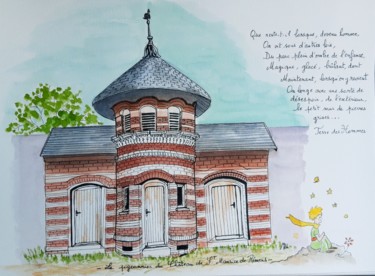 Que reste-t-il lorsque, devenu homme,
On vit sous d'autres lois,
Du parc plein d'ombre de l'enfance,
Magique, glacé, brûlant, dont
Maintenant, lorsqu'on y revient
On longe avec une sorte de
désespoir, de l'extérieur,
le petit mur de pierres
grises...
Terre des Hommes
Le pigeonnier du Château de St Maurice de Rémens